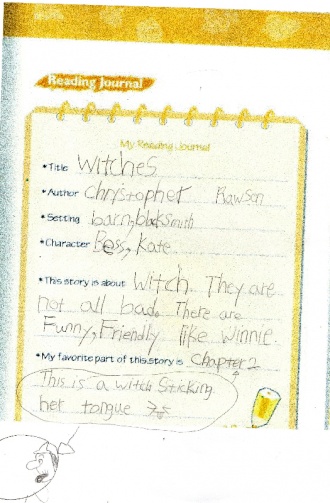 Reading Journal
My Reading Journal
• Title Witches
• Author Christopher Rawson
• Setting barn, blacksmith
• Character Bess, Kate
• This story is about Witch. They are
not all bad. There are
Funny, Friendly like Winnie.
• My favorite part of this story is Chapter 2
This is a witch sticking
her tongue